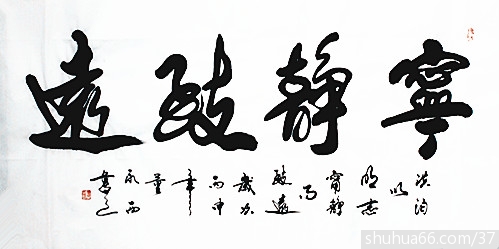 寧靜致遠
淡泊
以
明志
寧靜
而
致遠
歲次
丙申
年
夏
永西
書
shuhua66.com/37